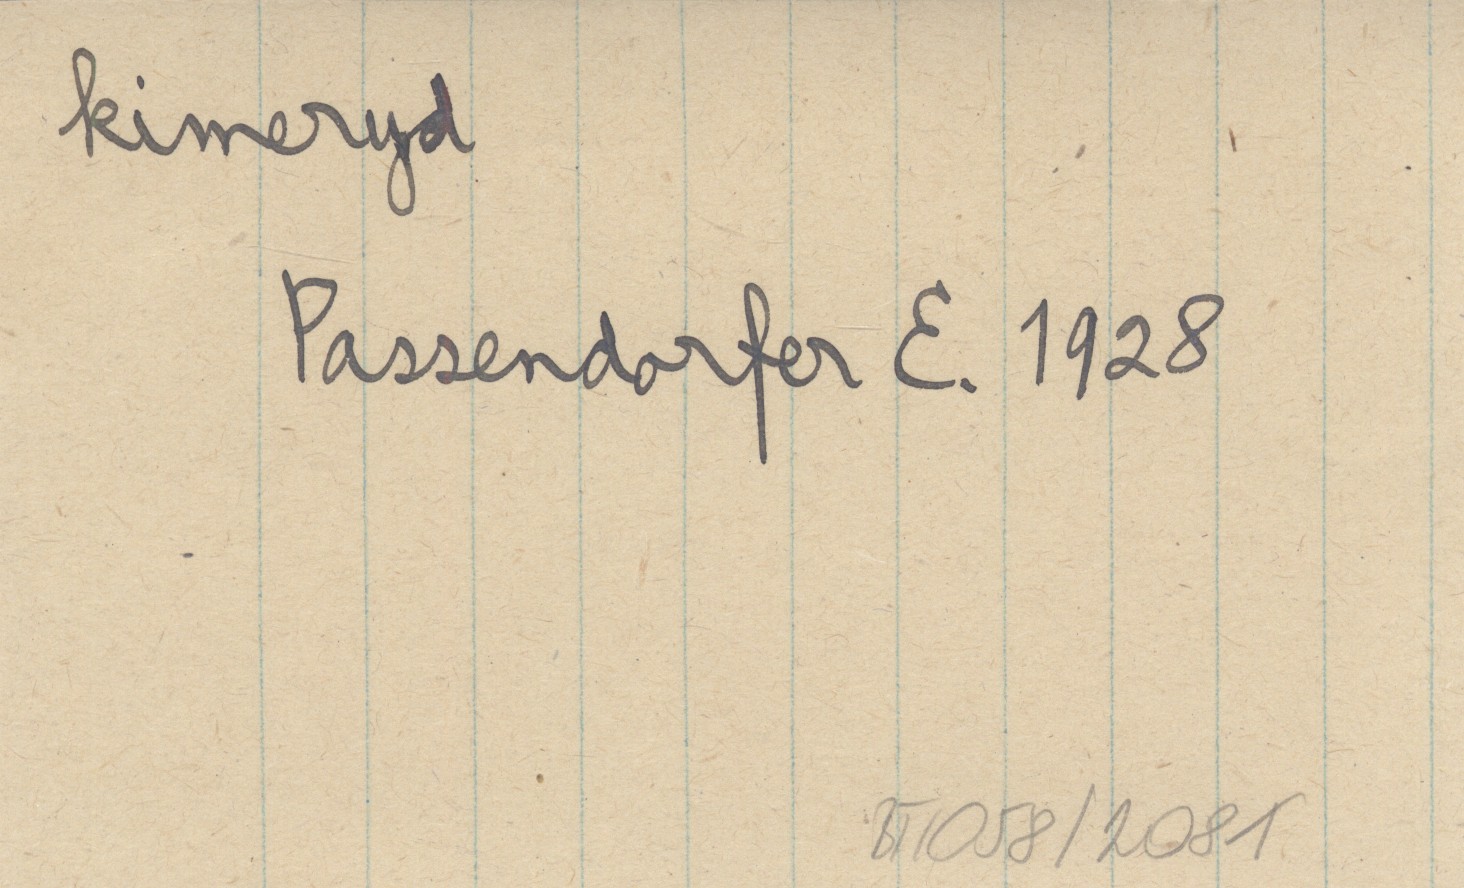 kimeryd
Passendorfer E. 1928
BT1058/2081